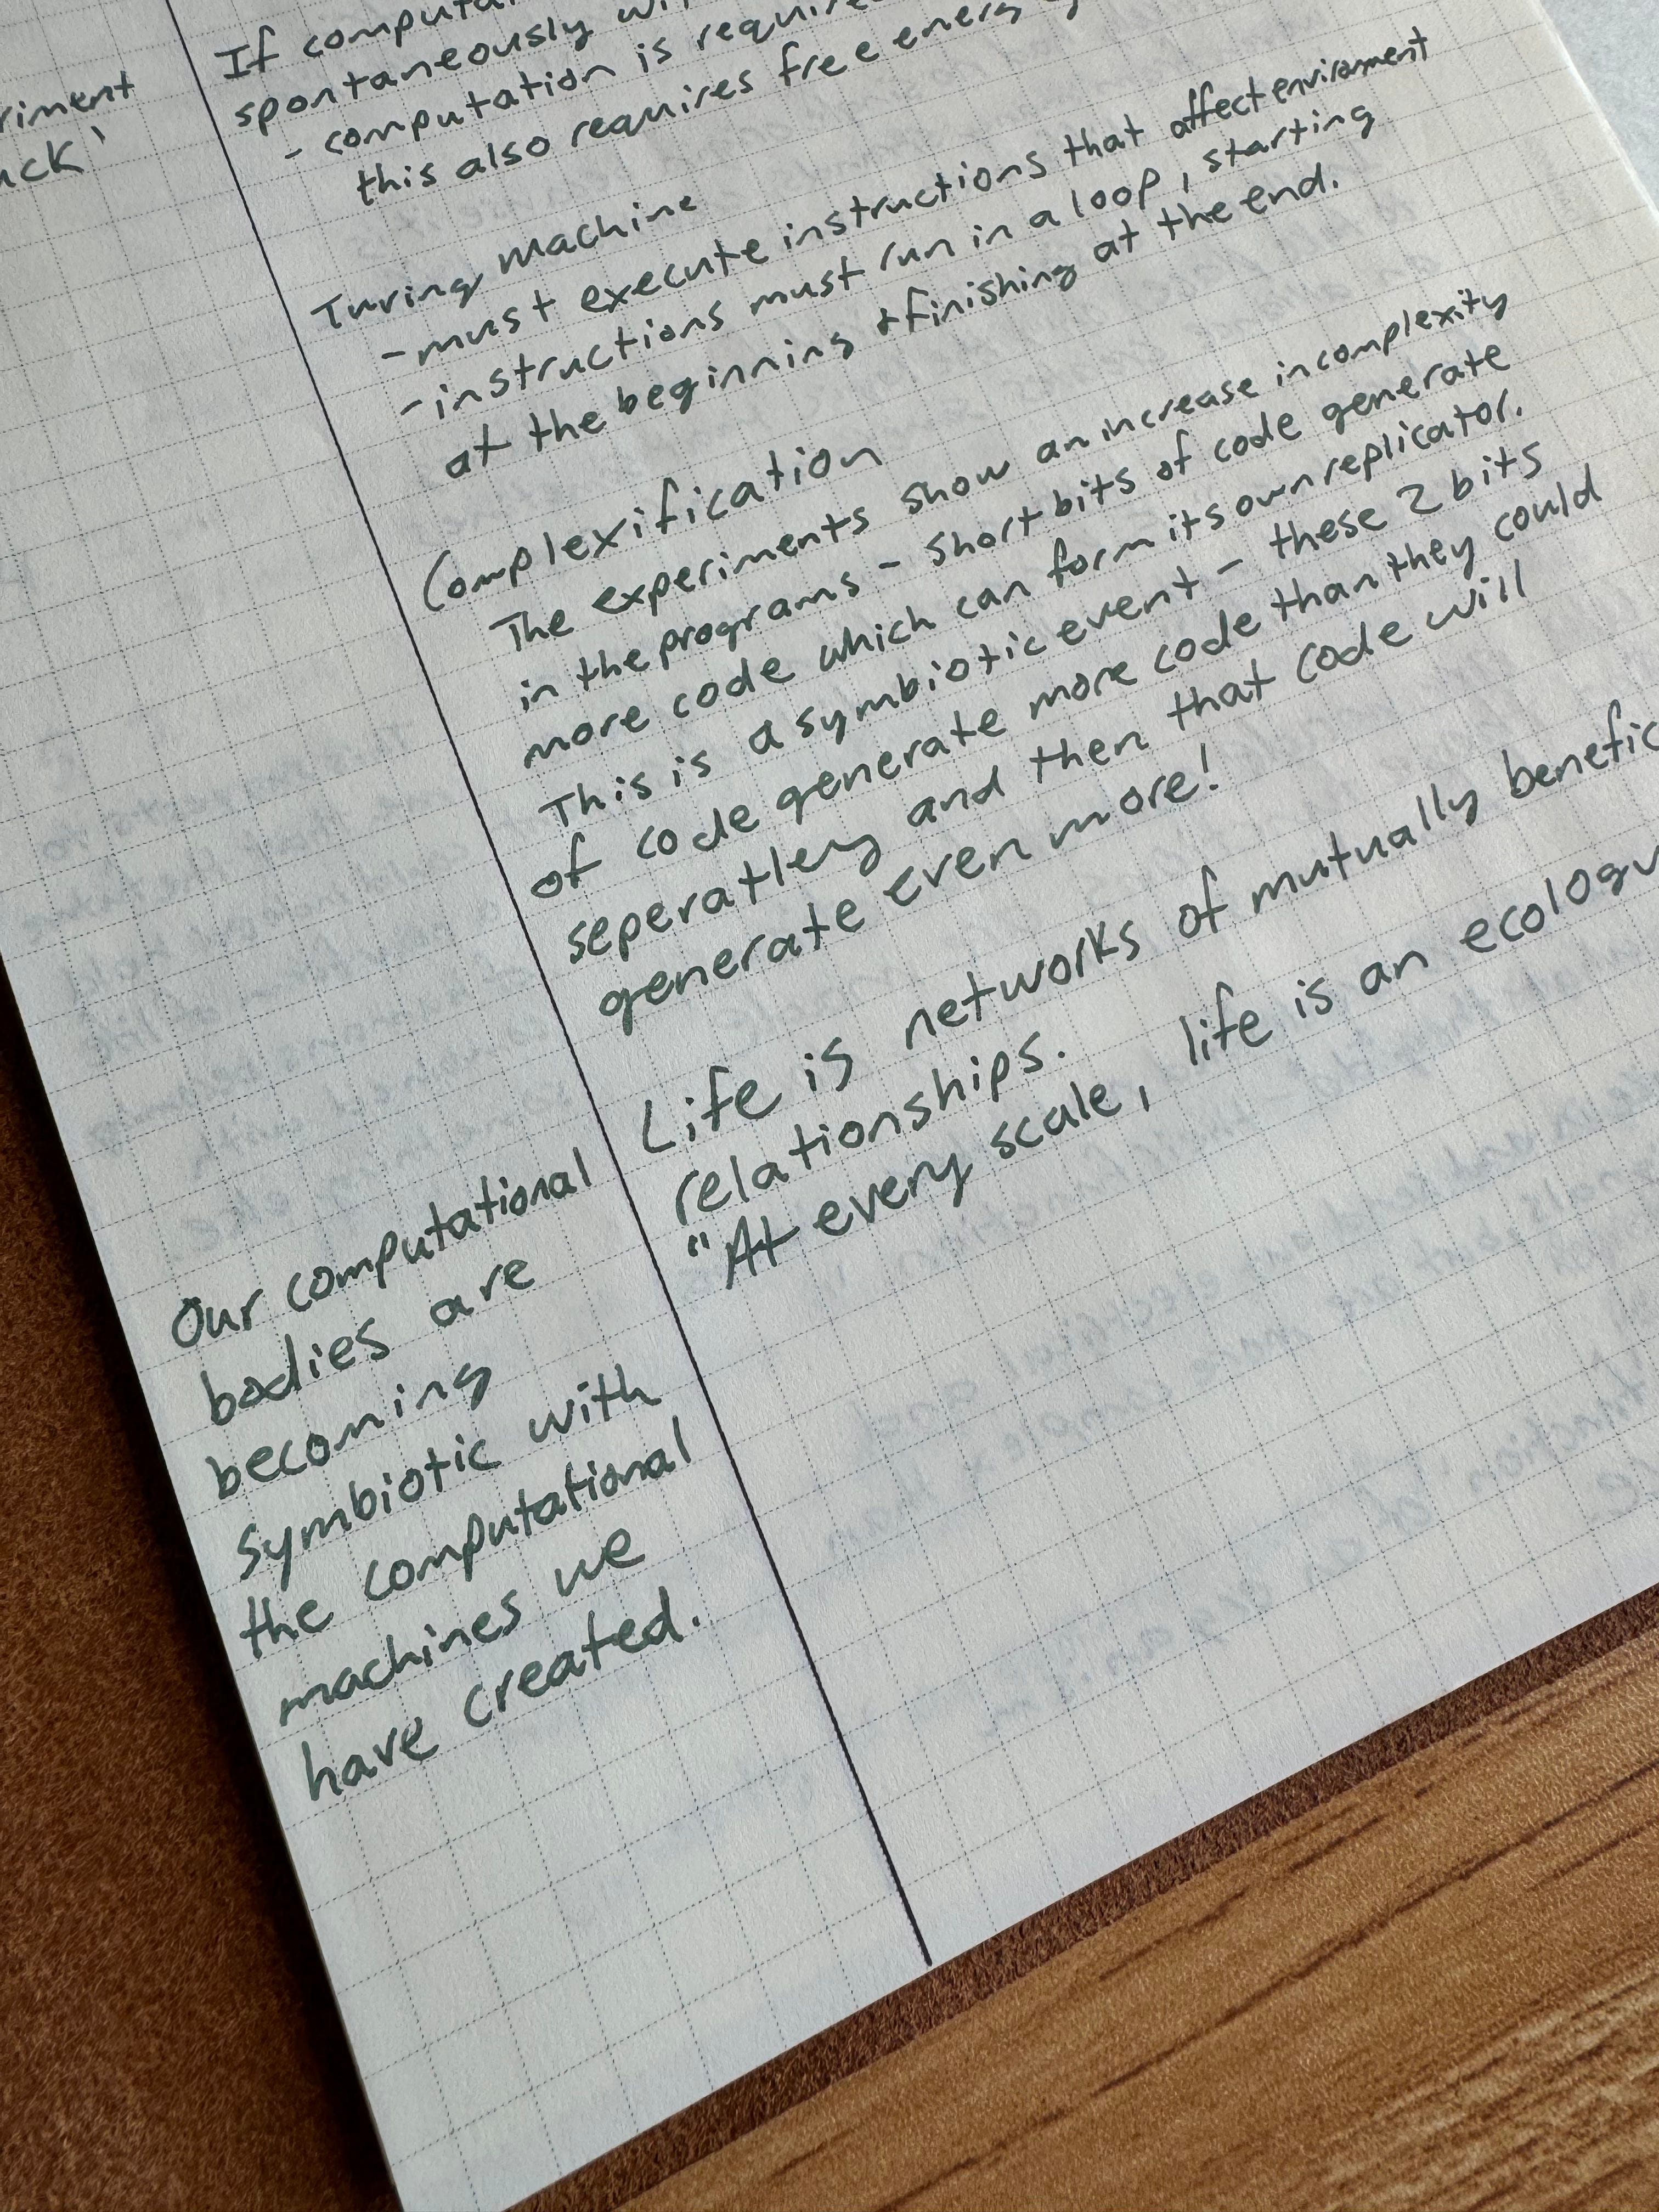 riment
If
spontaneously
- computation is
this also requires free energy
Turing machine
- must execute instructions that affect enviroment
- instructions must run in a loop, starting
at the beginning + finishing at the end.
Complexification
The experiments show an increase in complexity
in the programs - short bits of code generate
more code which can form its own replicator.
This is a symbiotic event - these 2 bits
of code generate more code than they could
seperatley and then that code will
generate even more!
Life is networks of mutually
relationships.
"At every scale, life is an
Our computational
bodies are
becoming
symbiotic with
the computational
machines we
have created.